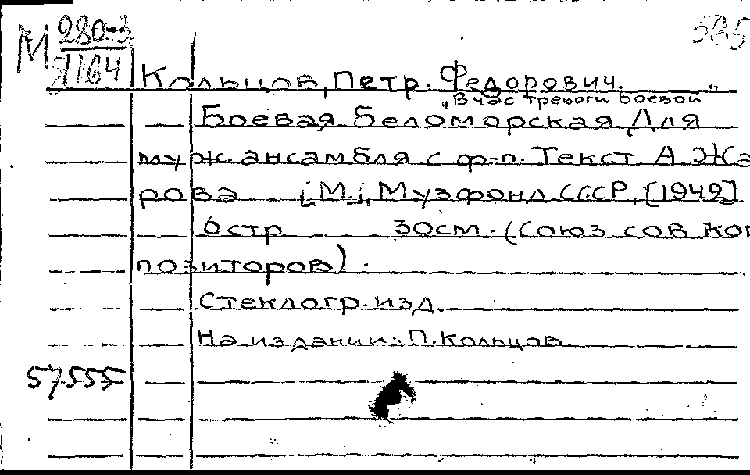 М 280-3
1164
Кольцов, Петр. Федорович.
„В час тревоги боевой"
Боевая Беломорская Для
муж. ансамбля с ф-п. Текст А. Жа
рова [М.], Музфонд СССР, [1949]
6 стр 30см. (Союз сов ком
позиторов).
Стеклогр. изд.
На издании: П. Кольцов
57555